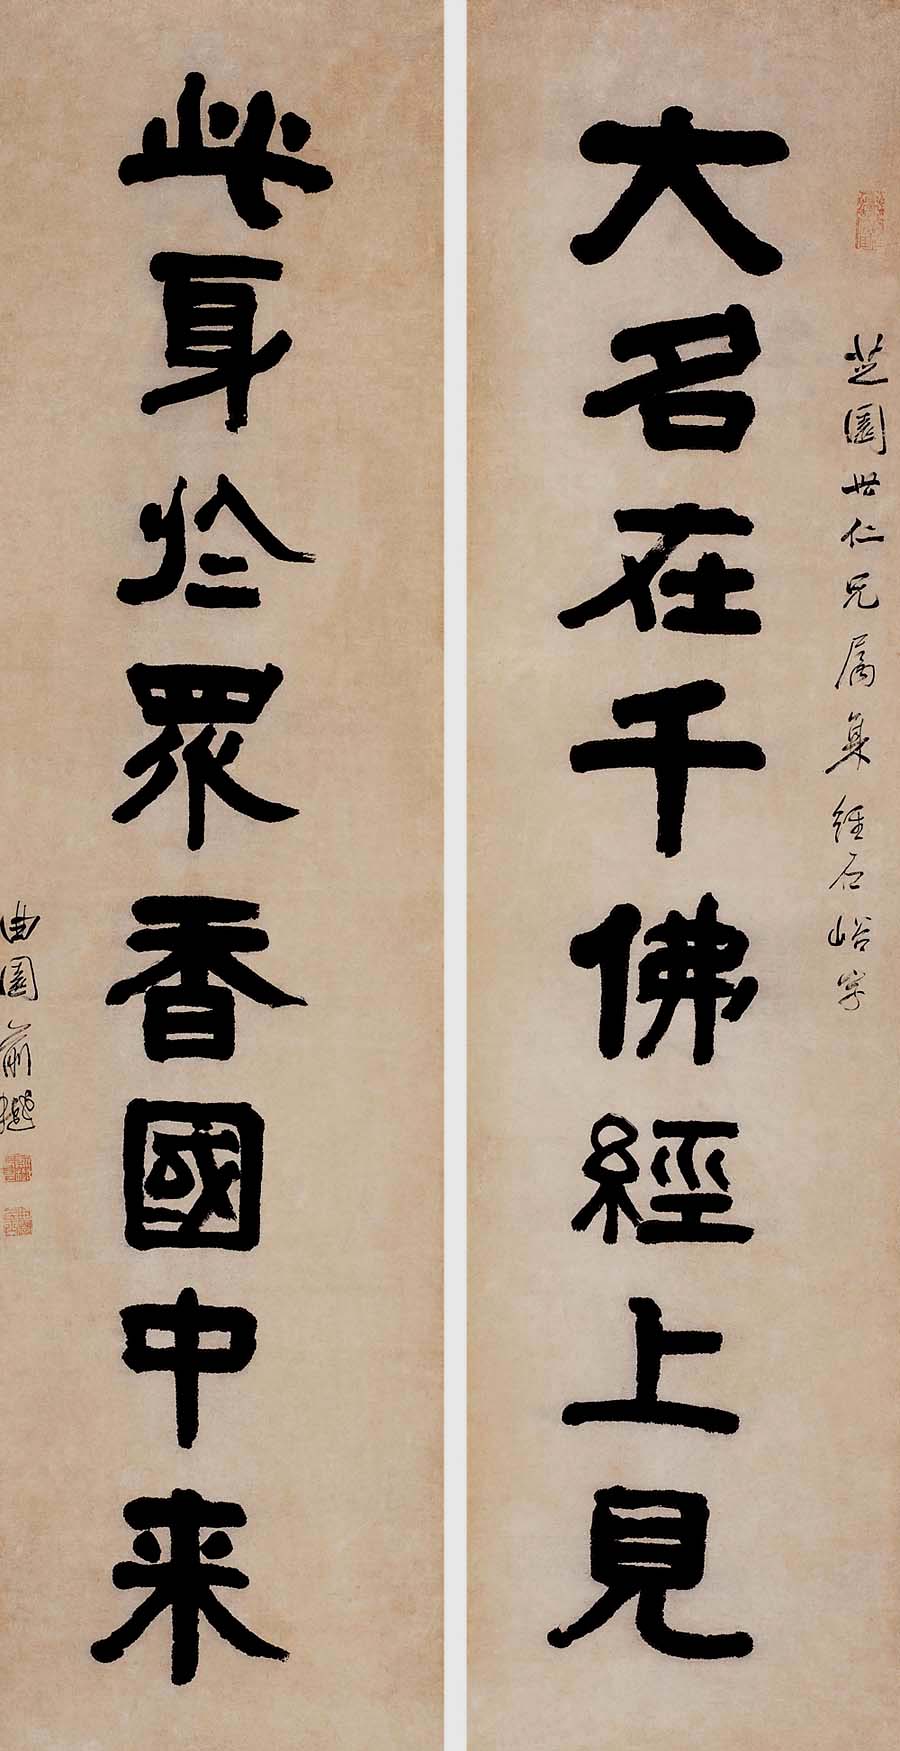 芝園世仁兄属集經石峪字
大名在千佛經上見
此身於眾香國中来
曲園俞樾